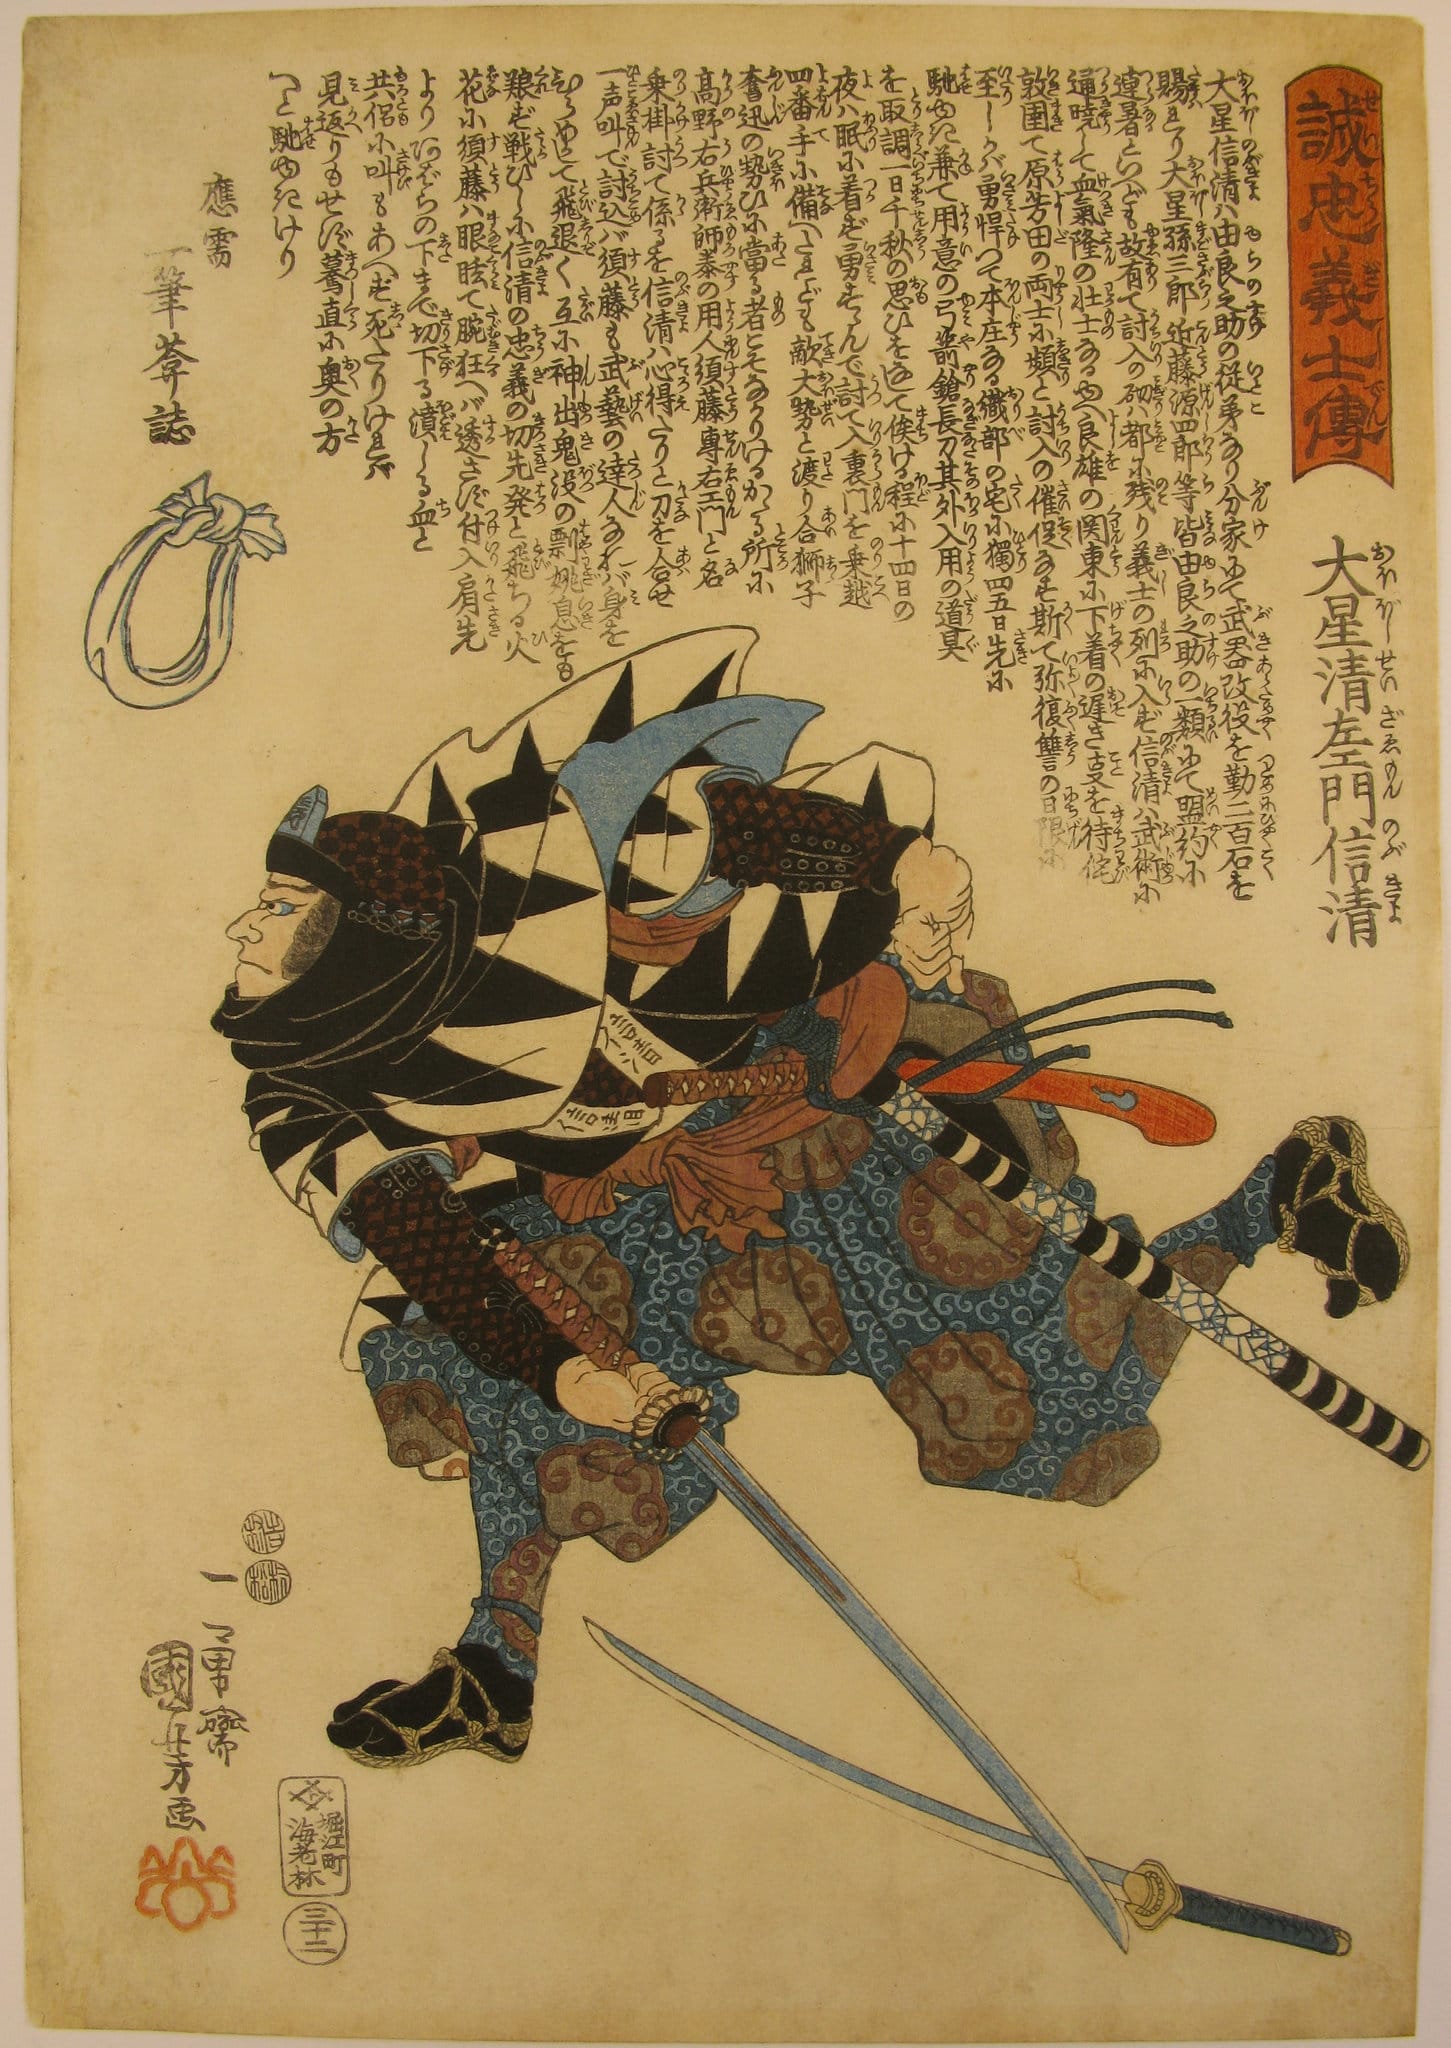 誠忠義士傳
せいちうぎしでん
大星清左エ門信清
おほぼしせいざゑもんのぶきよ
大星信清ハ由良之助の従弟なり分家にて武器改役を勤二百石を
賜ふ大星孫三郎近藤源四郎等皆由良之助の一類にて盟約に
連署といへども故有て討入の砌ハ都に残り義士の列に入ず信清ハ武術に
通暁して血氣隆の壮士なるゆへ良雄の関東に下着の遅きを待侘
敦圉て原芳田の両士に頻と討入の催促なす斯て弥復讐の日限に
至しかバ勇悍つて本庄なる織部の宅に獨四五日先に
馳ゆき兼て用意の弓箭鎗長刀其外入用の道具
を取調一日千秋の思ひをなして俟ける程に十四日の
夜ハ眠に着ず勇すゝんで討て入裏門を乗越
四番手に備へたれども敵大勢と渡り合獅子
奮迅の勢ひに當る者こそなかりけるかゝる所に
高野右兵衛師泰の用人須藤專右エ門と名
乗掛討て係るを信清ハ心得たりと刀を合せ
一声叫で討込バ須藤も武藝の達人なれバ身を
飛退く互に神出鬼没の剽姚息をも
戦ひしに信清の忠義の切先発と飛ちる火
花に須藤ハ眼眩て腕狂へバ透さず付入肩先
よりあばらの下まで切下る漬しる血と
共侶に叫もあへず死たりけれバ
見返りもせず驀直に奥の方
へと馳ゆきけり
應需
一筆菴誌
一勇齋
國芳画
堀江町
海老林
三十二